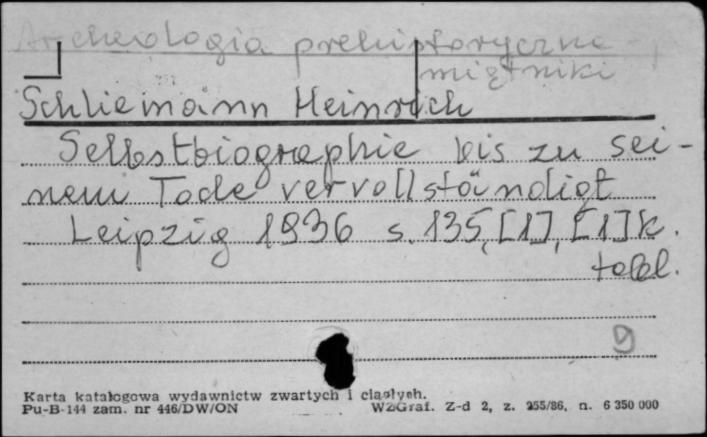 Archeologia prehistoryczna -
miętniki
Schliemann Heinrich
Selbstbiographie bis zu sei-
nem Tode vervollständigt
Leipzig 1936 s. 135, [1], [1] k.
tabl.
9
Karta katalogowa wydawnictw zwartych i ciągłych.
Pu-B-144 zam. nr 446/DW/ON WZGraf. Z-d 2, z. 255/86, n. 6 350 000